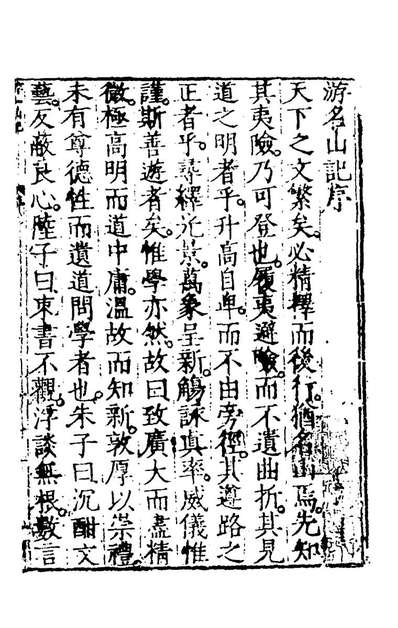 游名山記序
天下之文繁矣必精擇而後行猶名山焉先知
其夷險乃可登也履夷避險而不遺曲折其見
道之明者乎升高自卑而不由旁徑其遵路之
正者乎尋繹光景萬象呈新觴詠真率威儀惟
謹斯善遊者矣惟學亦然故曰致廣大而盡精
微極高明而道中庸溫故而知新敦厚以崇禮
未有尊德性而遺道問學者也朱子曰沉酣文
藝反蔽良心陸子曰束書不觀浮談無根數言